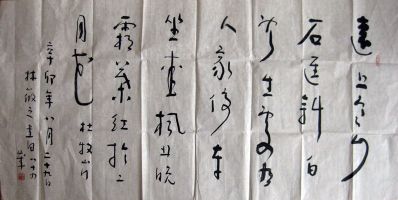 遠上寒山
石徑斜白
雲生處有
人家停車
坐愛楓林晚
霜葉紅於二
月花 杜牧山行
辛卯年八月二十九日
林筱之書